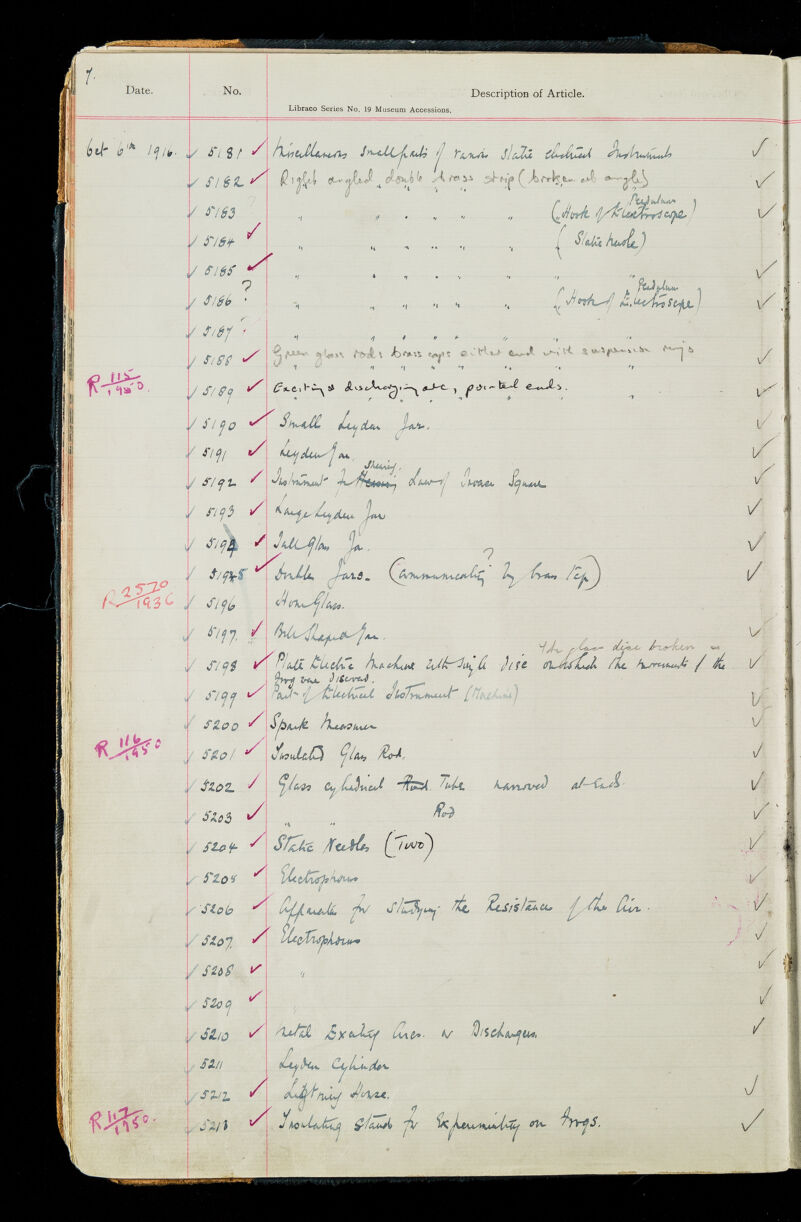 7.
Date. No. Description of Article.
Libraco Series No. 19 Museum Accessions.
Oct 6th 1916. 5181 Miscellaneous small parts of various static electrical Instruments
5182 Right angled double brass strip (broken at angle)
Pendulum
5183 " " " " " (Hook of Electroscope)
5184 " " " " " " (Static needle)
5185 " " " " " " "
Pendulum
5186 ? " " " " " " (Hook of Electroscope)
5187 ? " " " " " "
5188 Green glass rods brass caps either end with suspension rings
R 115/1950. 5189 Exciting & discharging arc, pointed ends.
5190 Small Leyden Jar.
5191 Leyden Jar.
shewing
5192 Instrument for Law of Inverse Square
5193 Large Leyden Jar
5194 Tall Glass Jar.
5195 Double Jars - (communicating ? by brass tap)
R 2570/1936 5196 Hour Glass.
5197. Bell Shaped Jar.
The glass disc broken
5198 Plate Electric Machine with single disc on which the movements of the
frog were discovered.
5199 Part of Electrical Instrument (Machine)
5200 Spark Measurer
R 116/1950 5201 Insulated Glass Rod.
5202 Glass cylindrical Rod Tube narrowed at Ends.
5203 " " Rod
5204 Static Needles (Two)
5205 Electrophorus
5206 Apparatus for studying the Resistance of the Air.
5207. Electrophorus
5208 "
5209
5210 Metal Exciting Arcs. or Dischargers.
5211 Leyden Cylinder
5212 Lightning House.
R 117/1950. 5213 Insulating Stand for Experimenting on Frogs.